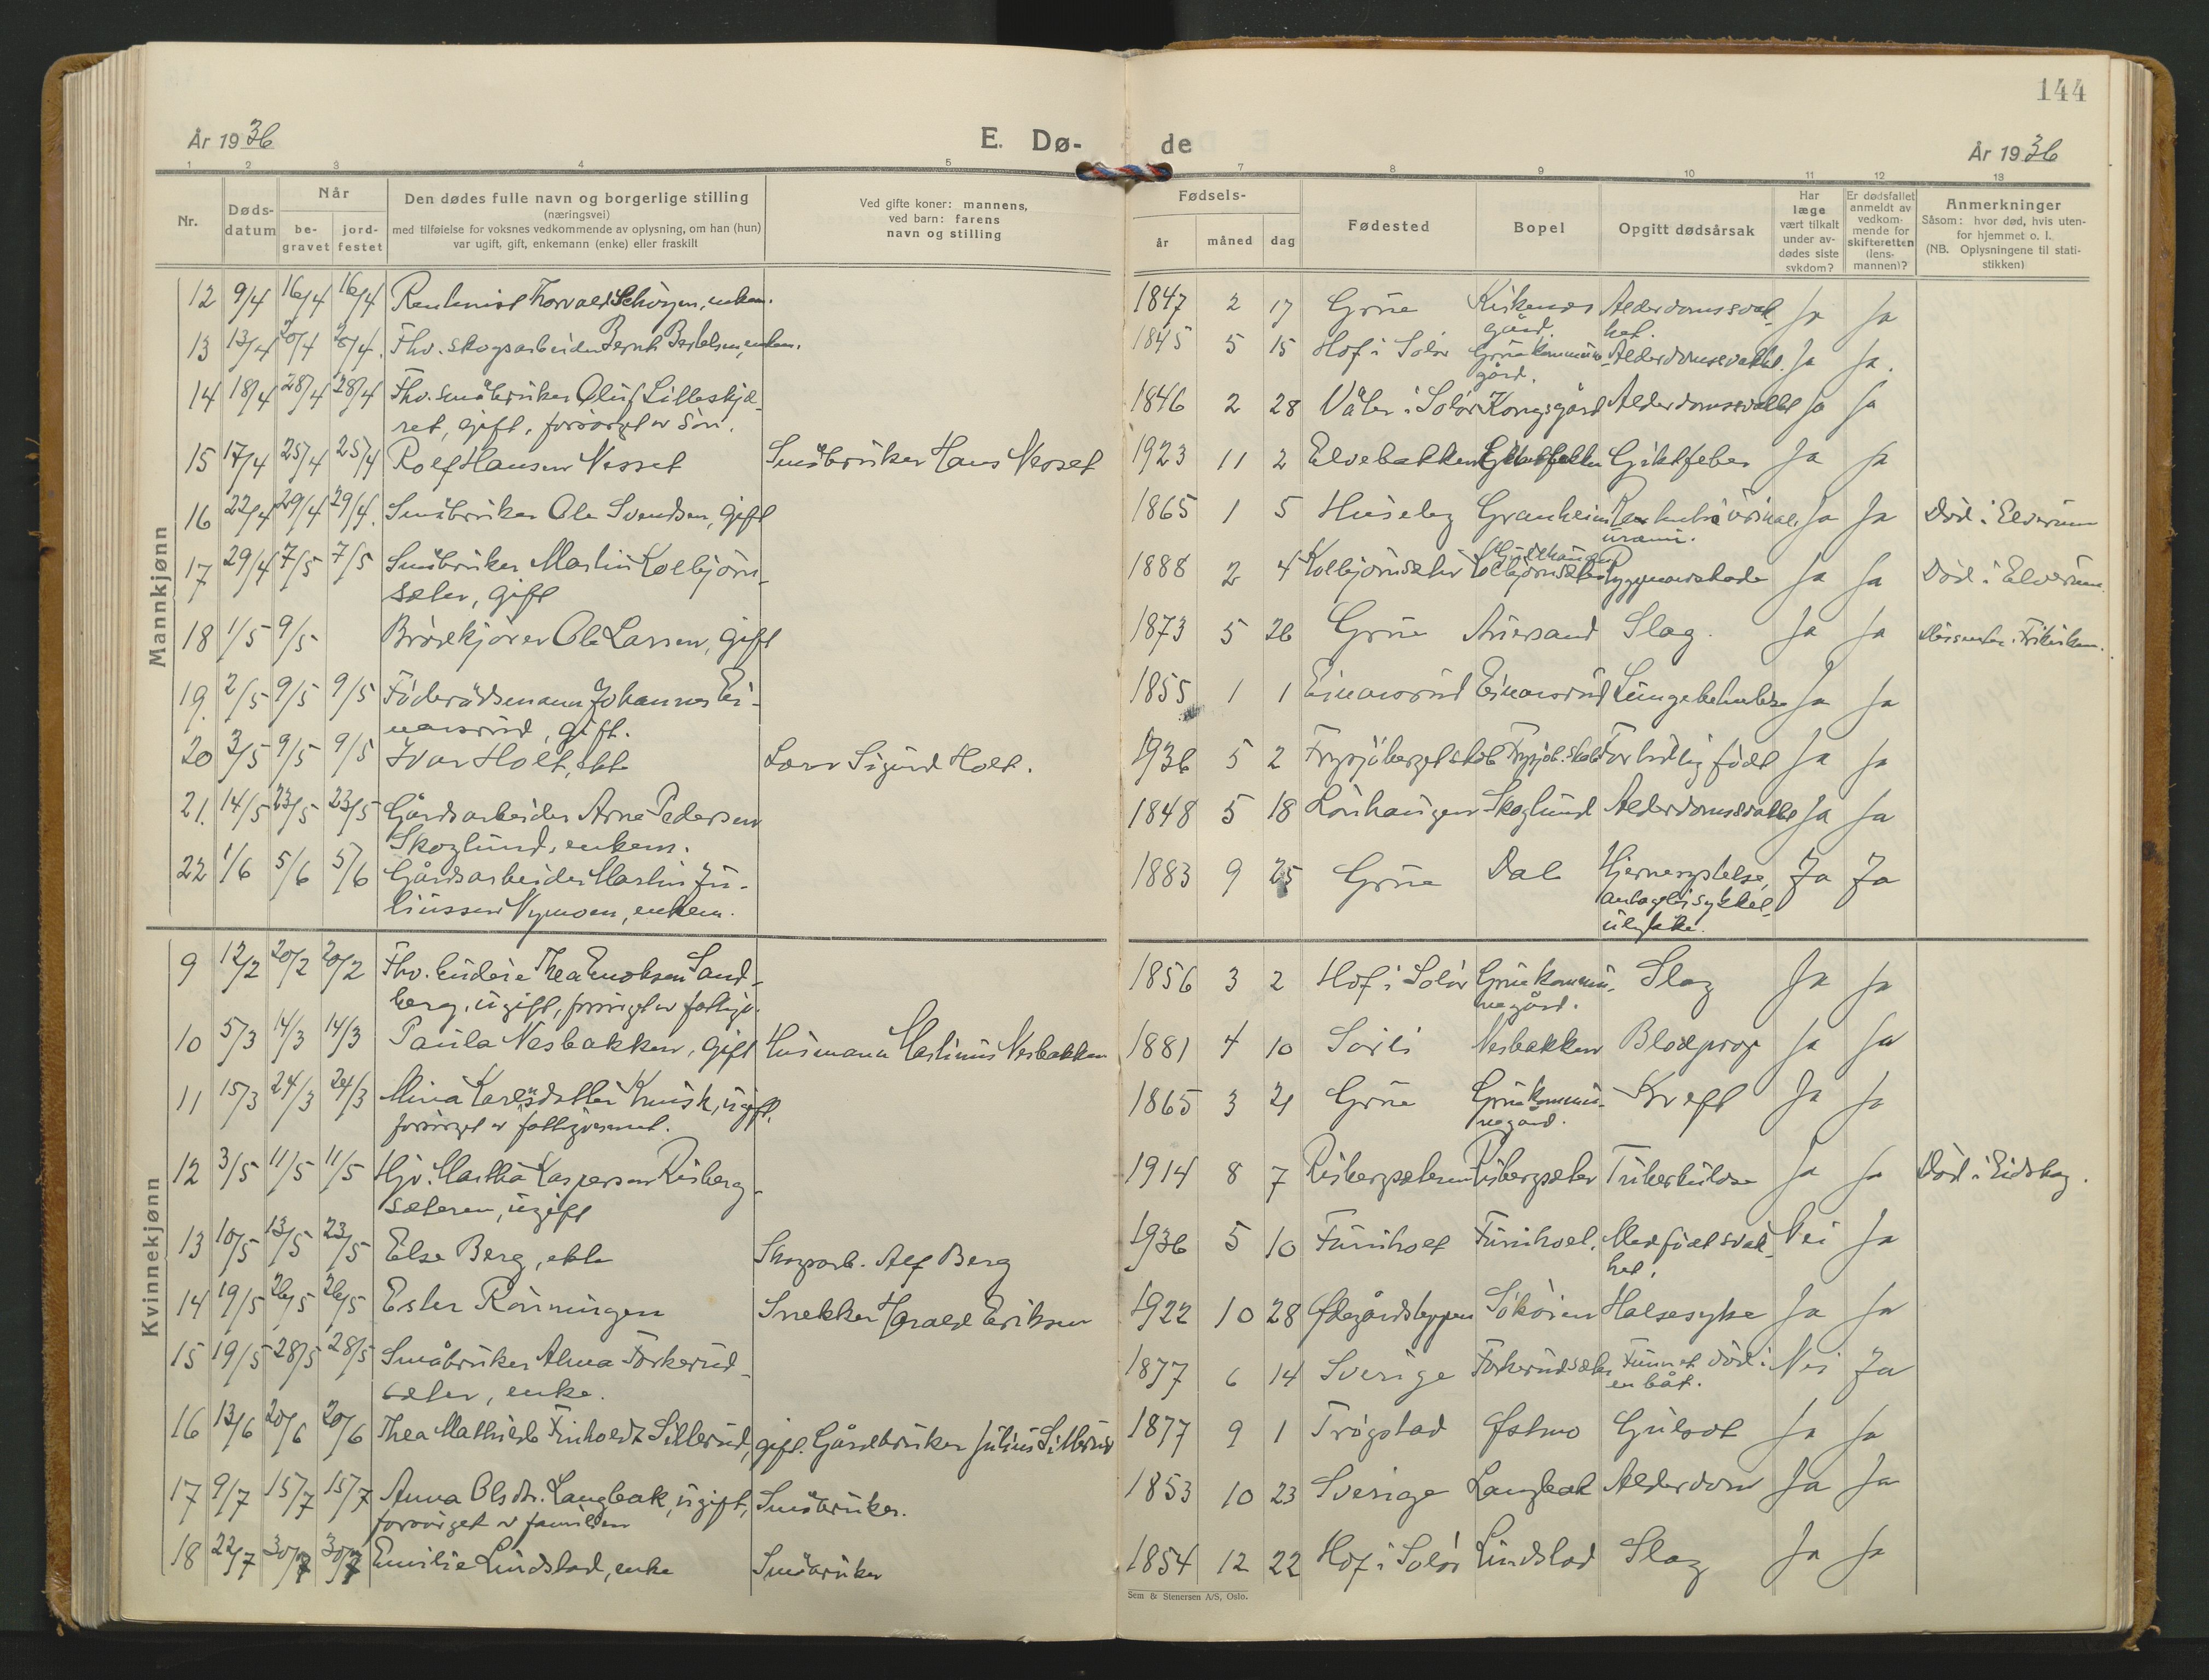 144
År 1936
E. Dø-
de
År 1936
1 2 3 4 5 7 8 9 10 11 12 13
Nr.
Døds-
datum
Når
be-
gravet
jord-
festet
Den dødes fulle navn og borgerlige stilling
(næringsvei)
med tilføielse for voksnes vedkommende av oplysning, om han (hun)
var ugift, gift, enkemann (enke) eller fraskilt
Ved gifte koner: mannens,
ved barn: farens
navn og stilling
Fødsels-
år måned dag
Fødested
Bopel
Opgitt dødsårsak
Har
læge
vært tilkalt
under av-
dødes siste
sykdom?
Er dødsfallet
anmeldt av
vedkom-
mende for
skifteretten
(lens-
mannen)?
Anmerkninger
Såsom: hvor død, hvis uten-
for hjemmet o. l.
(NB. Oplysningene til stati-
stikken)
Mannkjønn
12 9/4 16/4 16/4 Thorvald enkem. 1847 2 17 Grue Kirkenes Alderdomssvak- Ja Ja
gård. het.
13 13/4 20/4 20/4. Fhv. skogsarbeider Bernt Bertelsen, enkem. 1845 5 15 Hof i Solør Gruekommune Alderdomssvakhet. Ja Ja.
gård.
14 18/4 28/4 28/4 Fhv. småbruker Oluf Lilleskjæ- 1846 2 28 Våler i Solør Kongsgård Alderdomssvakhet Ja Ja
ret, gift, forsørget av søn.
15 17/4 25/4 25/4 Rolf Hansen Nesset Småbruker Hans Nesset 1923 11 2 Elvebakken Giktfeber Ja Ja
16 22/4 29/4 29/4. Småbruker Ole Svendsen, gift 1865 1 5 Huseby Granheim Ja Ja Død i Elverum
urämi.
17 29/4 7/5 7/5 Småbruker Martin Kolbjørn- 1888 2 4 Kolbjørnsæter Kolbjørnsæter Ryggmarvskade Ja Ja Død i Elverum.
sæter, gift
18 1/5 9/5 Brødkjører Ole Larsen, gift 1873 5 26 Grue Arnesand Slag. Ja Ja Dissenter. Frikirken.
19. 2/5 9/5 9/5 Föderådsmann Johannes Ei- 1855 1 1 Einarsrud Einarsrud Lungebetendelse Ja Ja
narsrud, gift.
20 3/5 9/5 9/5 Ivar Holt, ekte Lærer Sigurd Holt. 1936 5 2 Frysjøberget skole Frysjøb. skole For tidlig født Ja Ja
21. 14/5 23/5 23/5 Gårdsarbeider Arne Pedersen 1848 5 18 Lönhaugen Skoglund Alderdomssvakhet Ja Ja
Skoglund, enkem.
22 1/6 5/6 5/6 Gårdsarbeider Martin Ju- 1883 9 25 Grue Dal Hjernerystelse, Ja Ja
liussen Nymoen, enkem. antagelig sykkel-
ulykke.
Kvinnekjønn
9 12/2 20/2 20/2 Fhv. Thea Enoksen Sand- 1856 3 2 Hof i Solør Gruekommu- Slag Ja Ja
berg, ugift, forsørget av fattigv. negård.
10 5/3 14/3 14/3 Paula Nesbakken, gift Husmann Martinus Nesbakken 1881 4 10 Nesbakken Blodprop Ja Ja
11 15/3 24/3 24/3 Mina Karlsdatter Kvisk, ugift, 1865 3 21 Grue Gruekommu- Kreft Ja Ja
forsørget av fattigvesenet. negård.
12 3/5 11/5 11/5 Hjv. Martha Kaspersen Risberg- 1914 8 7 Risbergsæteren Risbergsæter Tuberkulose Ja Ja Død i Eidskog.
sæteren, ugift
13 10/5 13/5 23/5 Else Berg, ekte Skogsarb. Alf Berg 1936 5 10 Furuholt Furuholt. Medfødt svak- Nei Ja
het.
14 19/5 26/5 26/5 Ester Rönningen Snekker Harald Eriksen 1922 10 28 Ødegårdsteppen Halsesyke Ja Ja
15 19/5 28/5 28/5 Småbruker Alma Torkerud- 1877 6 14 Sverige Torkerudsæter Funnet död i Nei Ja
sæter, enke. en båt.
16 13/6 20/6 20/6 Thea Mathilde Finholdt Sillerud, gift. Gårdbruker Julius Sillerud 1877 9 1 Trögstad Østmo Gulsot Ja Ja
17 9/7 15/7 15/7 Anna Olsdtr. Langbak, ugift, Småbruker. 1853 10 23 Sverige Langbak Alderdom Ja Ja
forsörget av familien
18 22/7 30/7 30/7 Emilie Lindstad, enke Småbruker 1854 12 22 Hof i Solør Lindstad Slag Ja Ja
Sem & Stenersen A/S, Oslo.